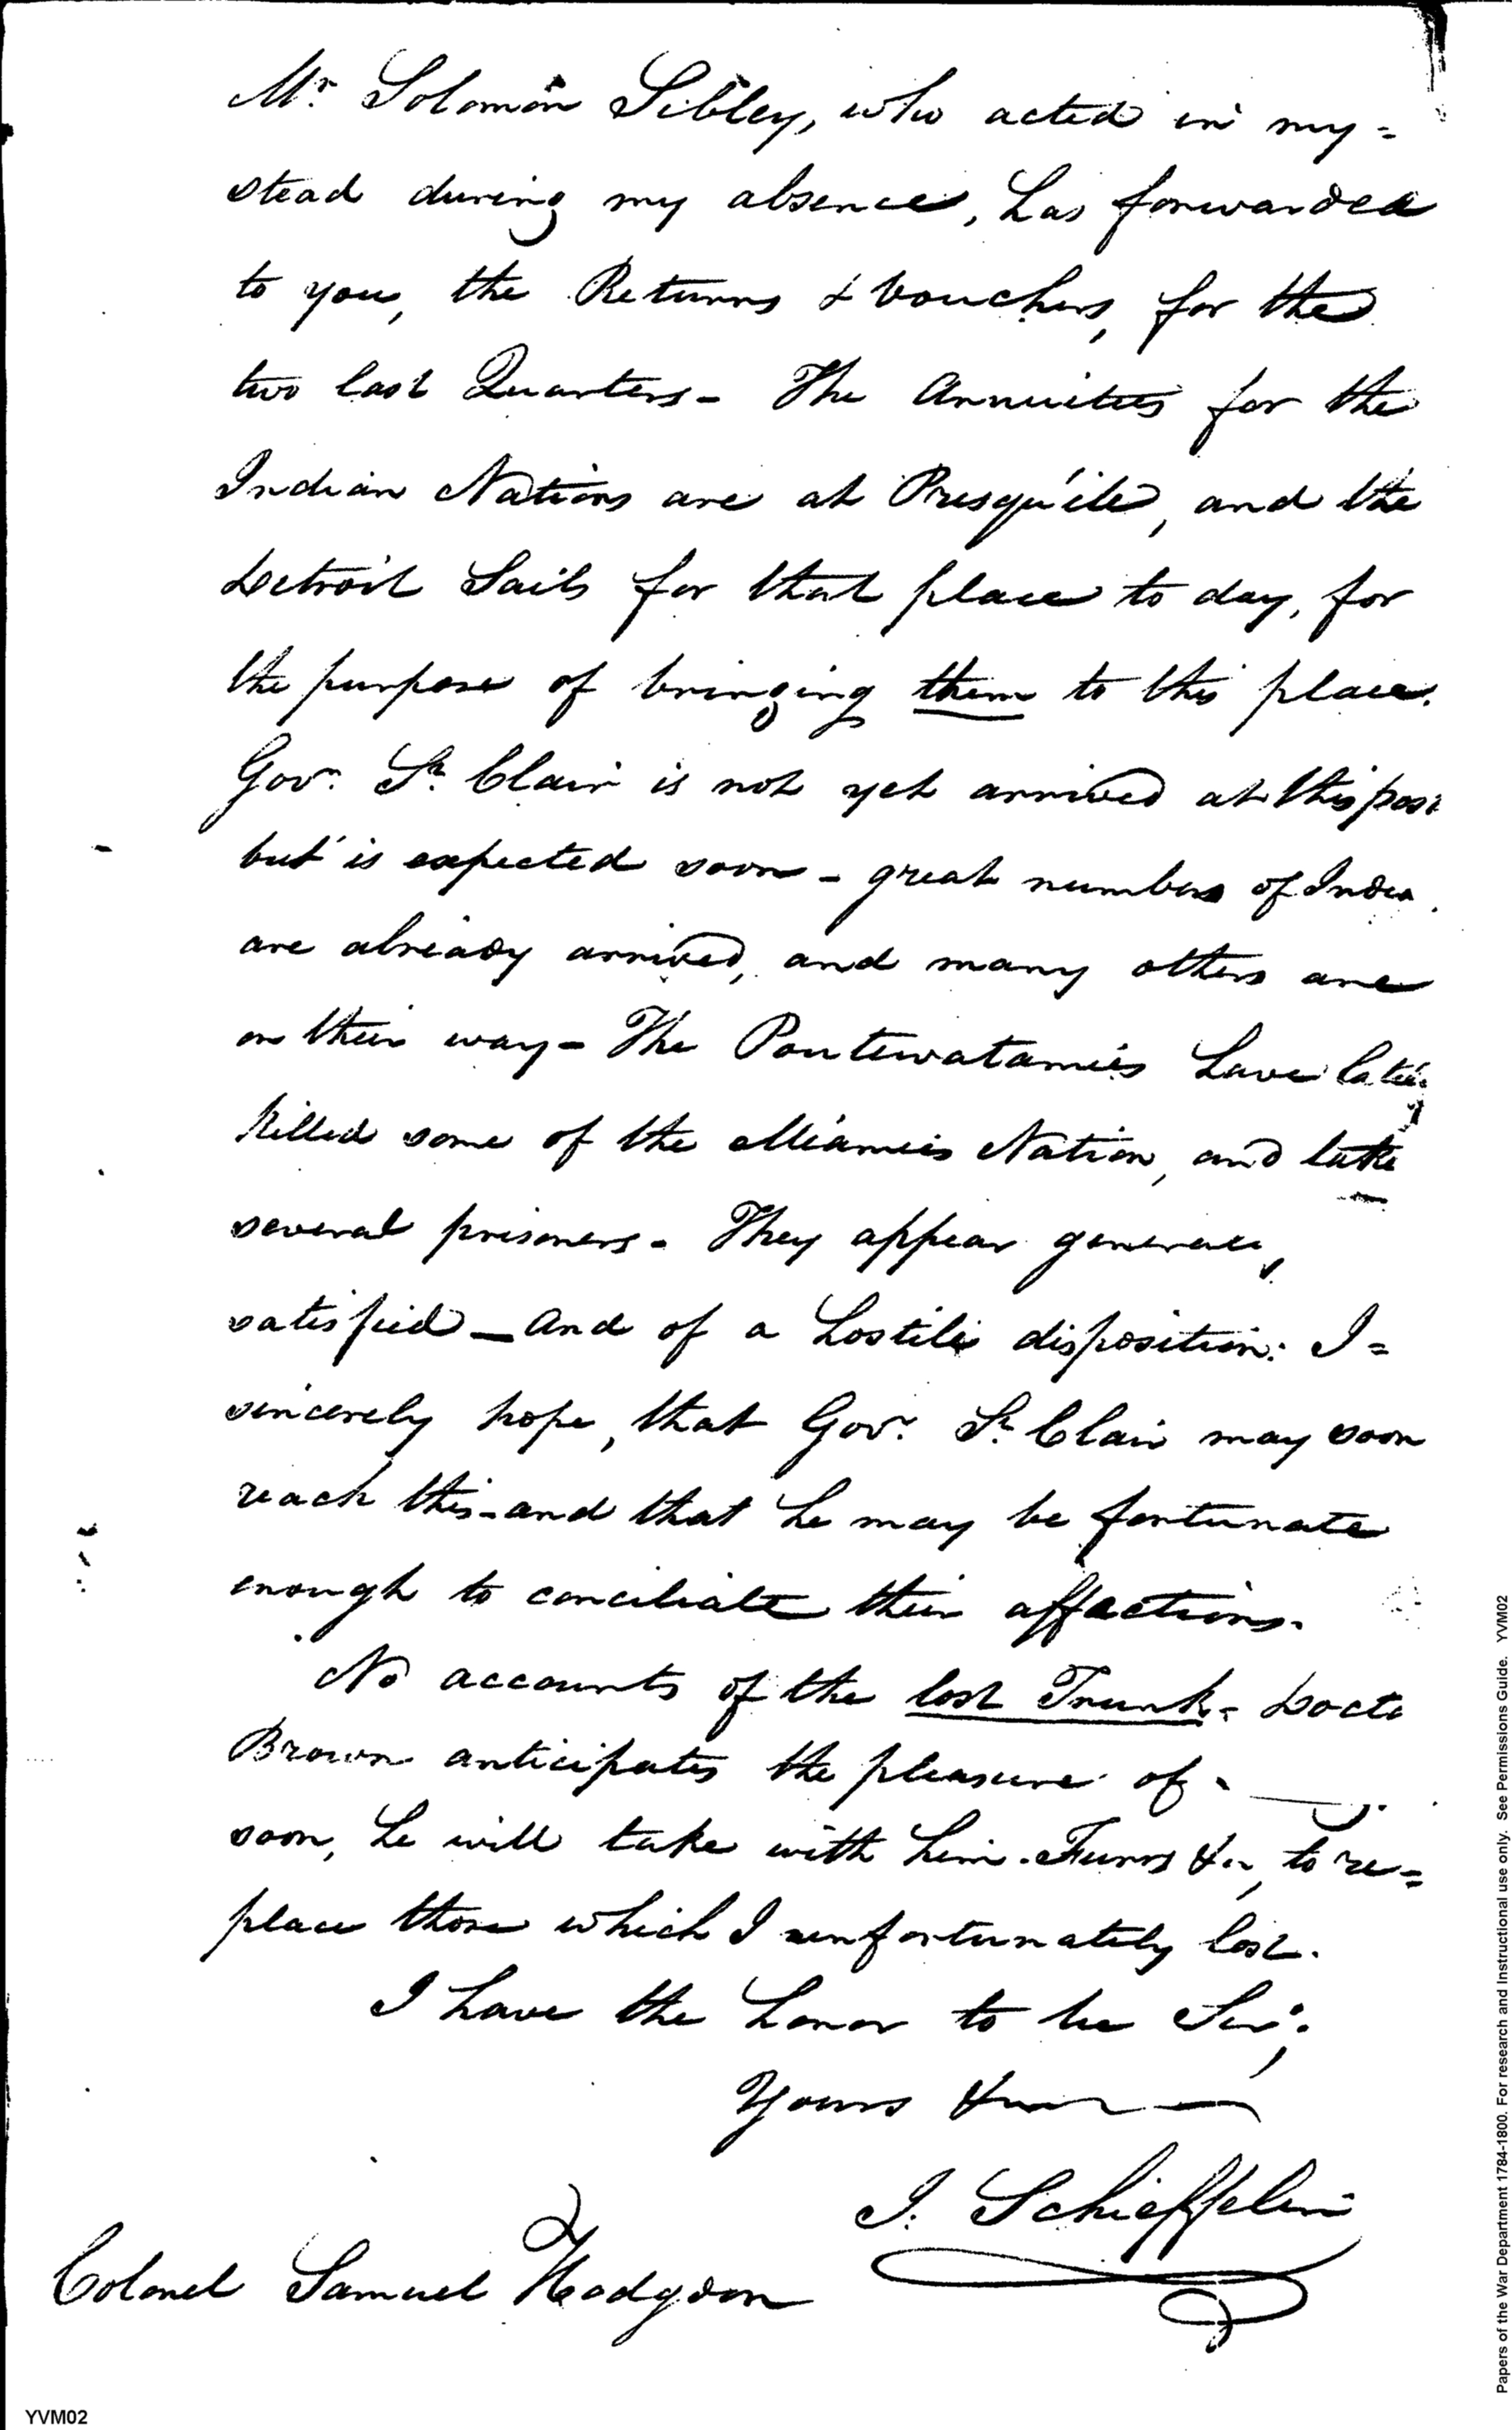 Mr. Solomon Sibley, who acted in my=
stead during my absence, has forwarded
to you, the Returns & Vouchers, for the
two last Quarters- The Annuities for the
Indian Nations are at Presqu'ile, and the
Detroit Sails for that place to day, for
the purpose of bringing them to this place.
Govr. St. Clair is not yet arrived at this post
but is expected soon - great numbers of
are already arrived, and many others are
on their way- The Poutewatamies have
killed some of the Miameis Nation, and
several prisoners. They appear
satisfied - and of a hostile disposition: I=
sincerely hope, that Govr. St. Clair may soon
reach this - and that he may be fortunate
enough to conciliate their affections.
No accounts of the lost Trunk. Docto
Brown anticipates the pleasure of
soon, he will take with him. Furrs &c, to re=
place those which I unfortunately lost.
I have the honor to be Sir;
Yours &c
J. Schieffelin
Colonel Samuel Hodgdon
YVM02
Papers of the War Department 1784-1800. For research and Instructional use only. See Permissions Guide. YVM02